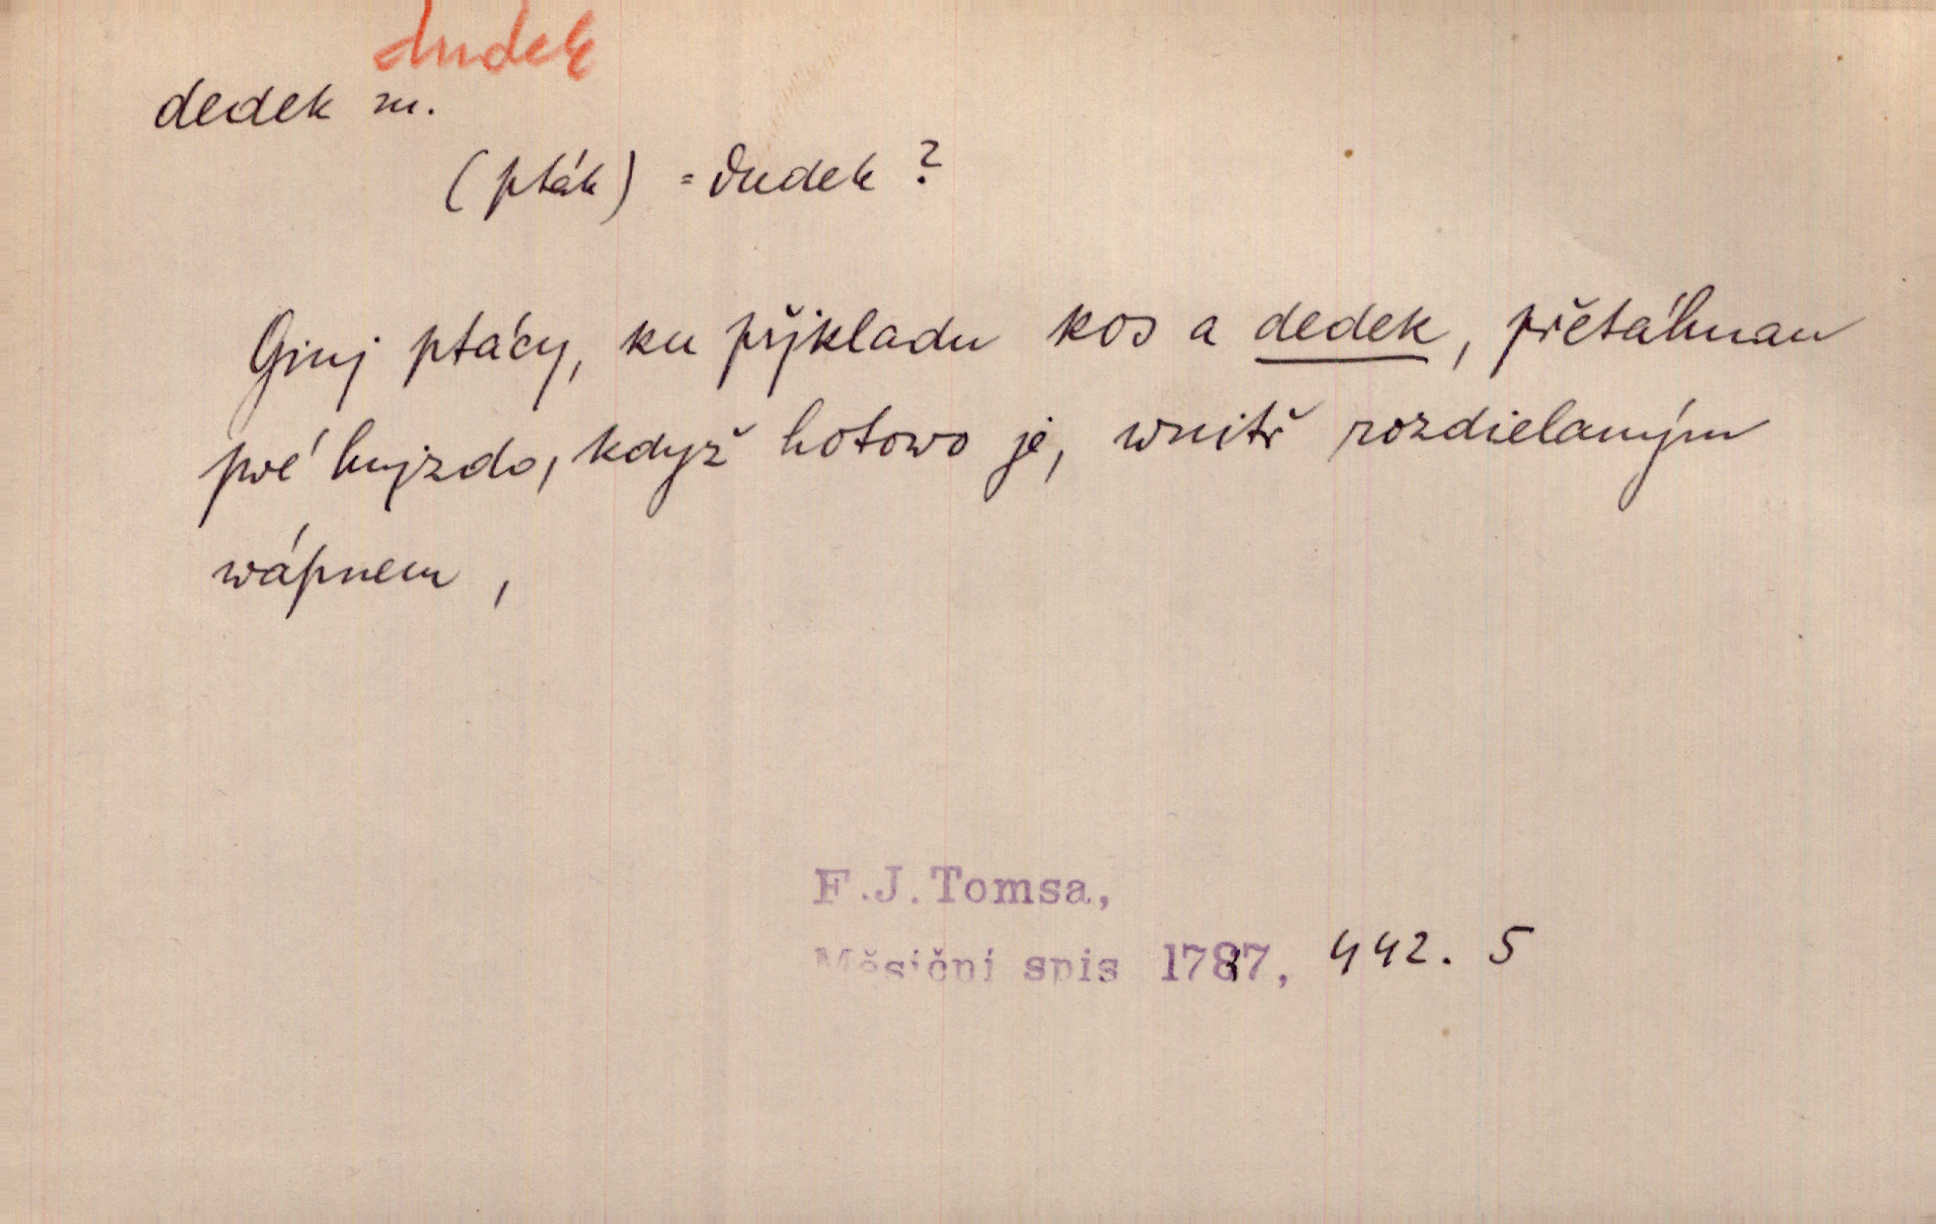 dudek
dedek m.
(pták) = dudek ?
Ginj ptácy, ku přjkladu kos a dedek, přetáhnau
své hnjzdo, když hotowo je, wnitř rozdielaným
wápnem ,
F.J.Tomsa,
Měsíční spis 1787, 442. 5